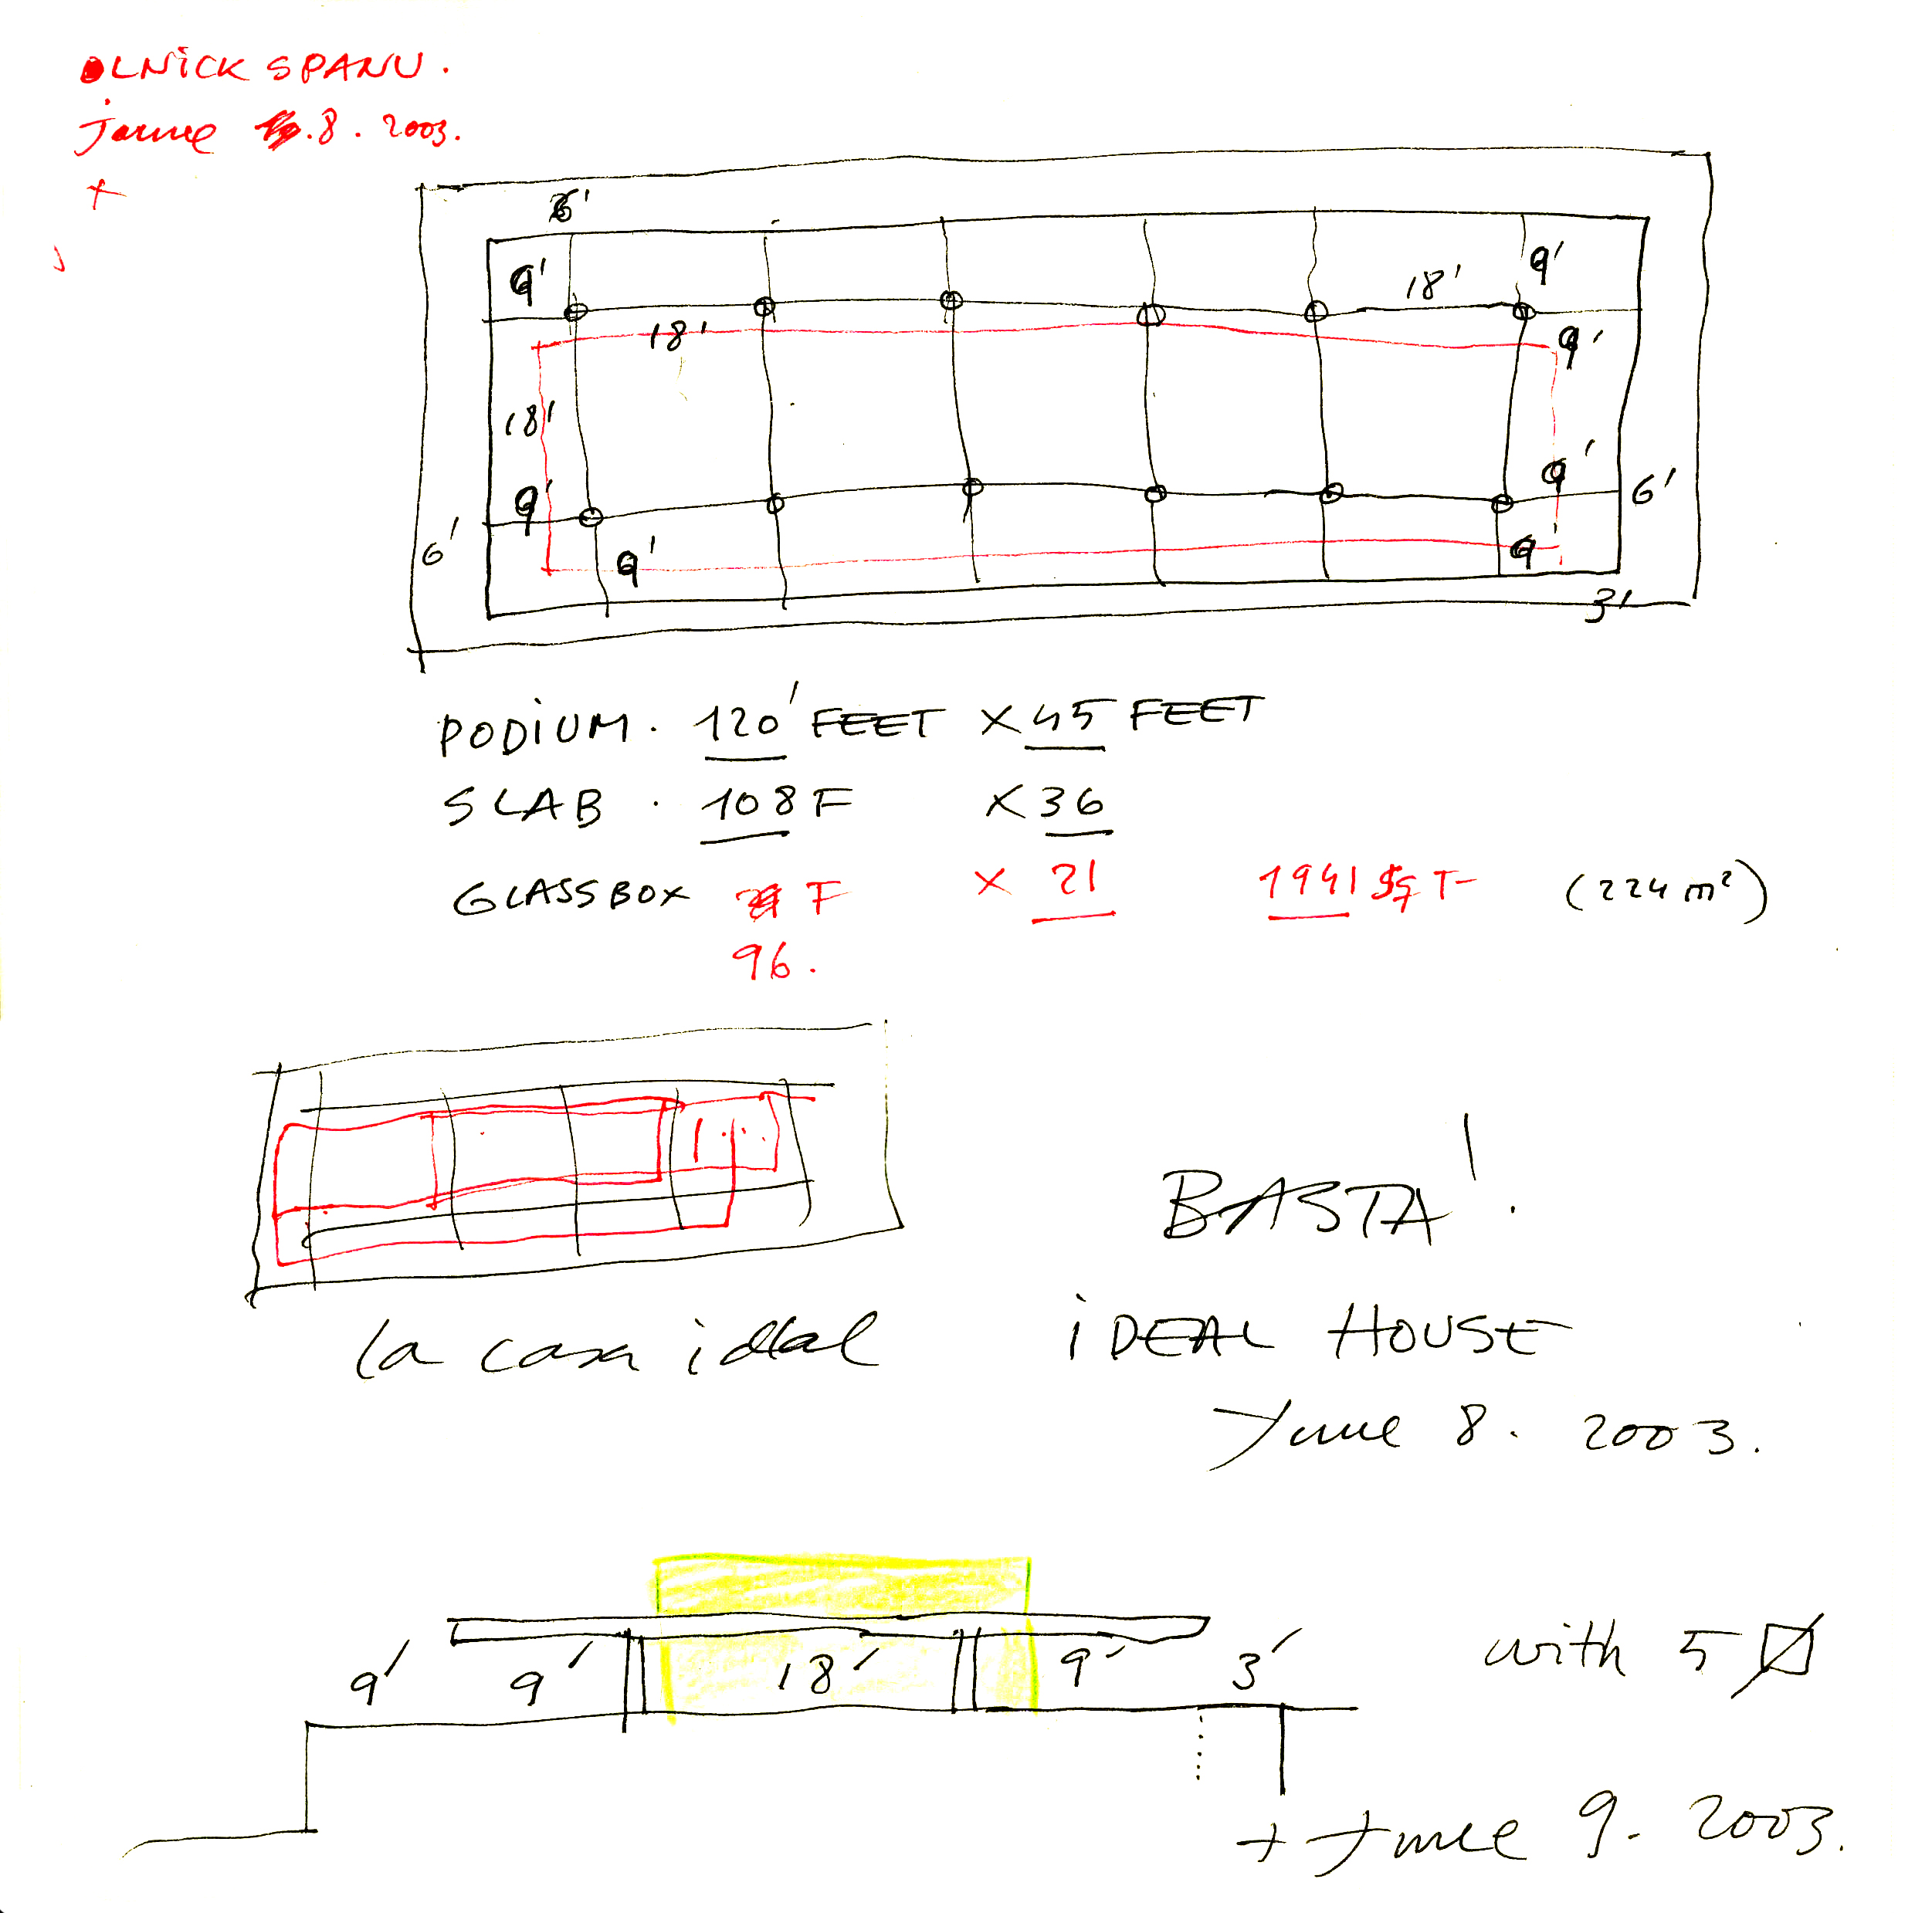 OLNICK SPANU.
June 8. 2003.
6'
9' 9'
18'
18' 9'
18'
9' 9'
6' 6'
9' 9'
3'
PODIUM. 120' FEET X 45 FEET
SLAB. 108 F X 36
GLASSBOX F X 21 1941 SqT (224 m²)
96.
BASTA!
la casa ideal
IDEAL HOUSE
June 8. 2003.
9' 9' 18' 9' 3'
with 5
+ June 9. 2003.